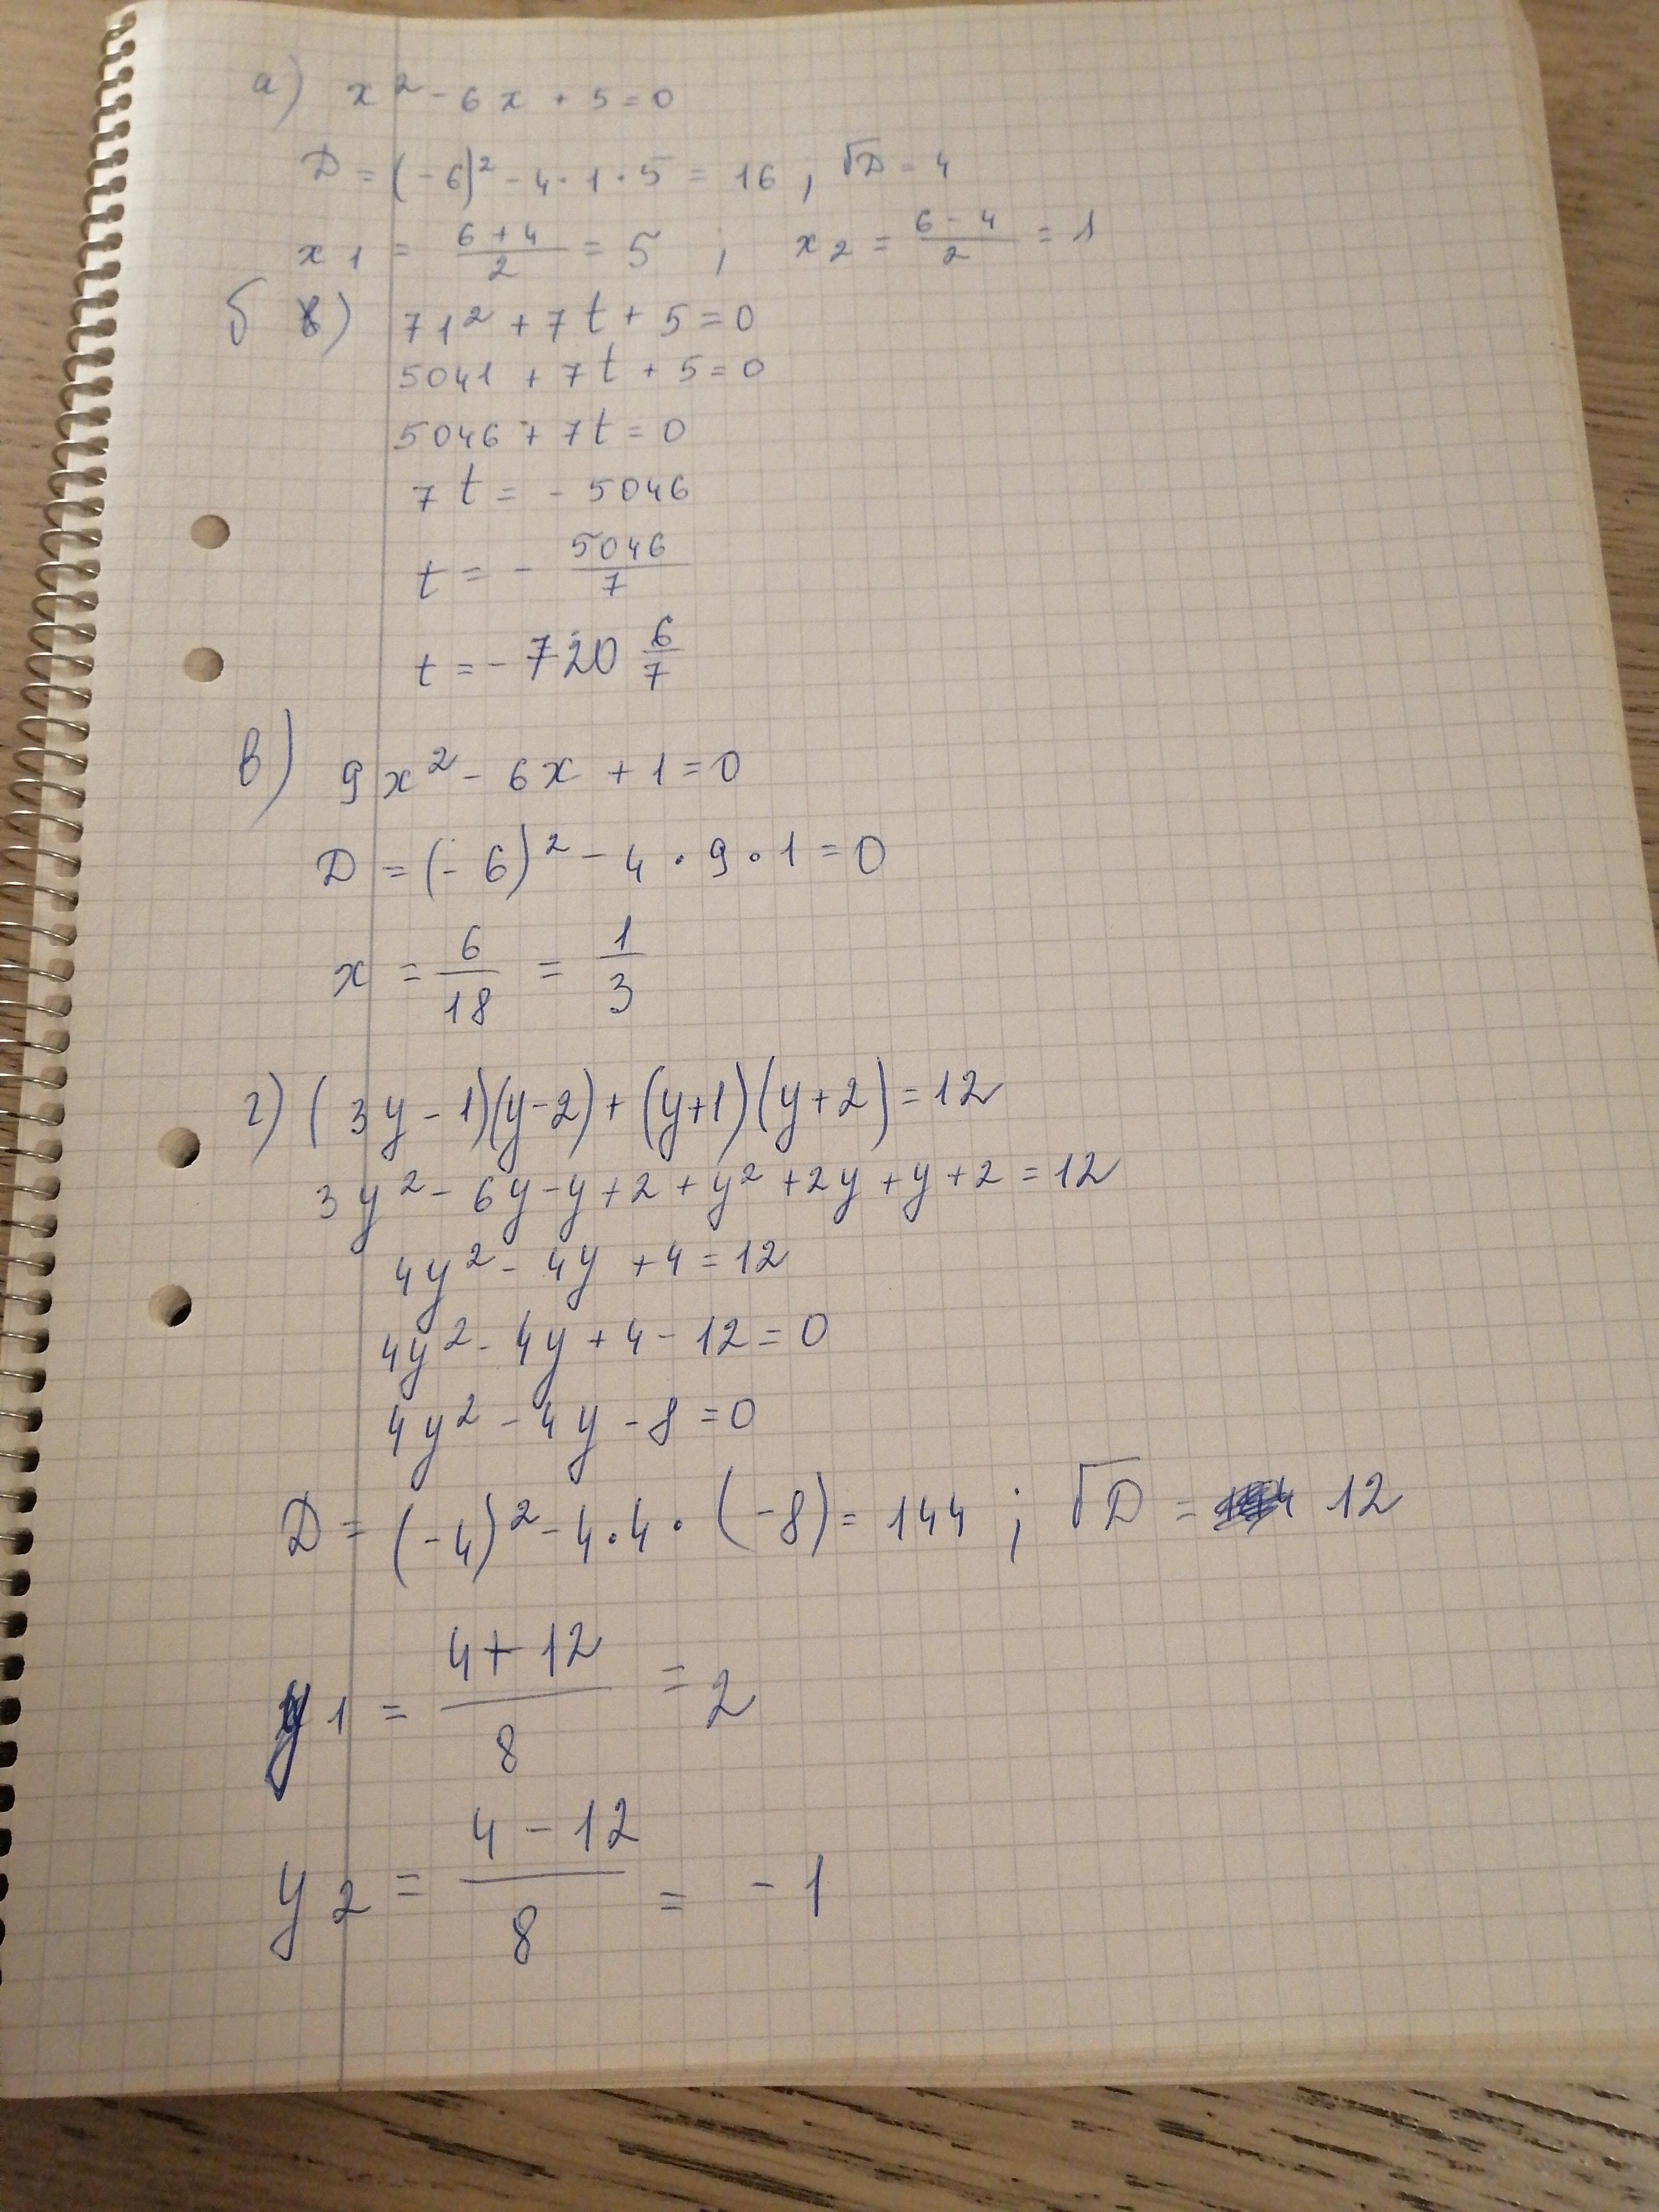 а) x² - 6x + 5 = 0
D = (-6)² - 4 · 1 · 5 = 16 ; √D = 4
x1 = (6 + 4)/2 = 5 ; x2 = (6 - 4)/2 = 1
б) 71² + 7t + 5 = 0
5041 + 7t + 5 = 0
5046 + 7t = 0
7t = - 5046
t = - 5046/7
t = - 720 6/7
в) 9x² - 6x + 1 = 0
D = (-6)² - 4 · 9 · 1 = 0
x = 6/18 = 1/3
г) (3y - 1)(y - 2) + (y + 1)(y + 2) = 12
3y² - 6y - y + 2 + y² + 2y + y + 2 = 12
4y² - 4y + 4 = 12
4y² - 4y + 4 - 12 = 0
4y² - 4y - 8 = 0
D = (-4)² - 4 · 4 · (-8) = 144 ; √D = 12
y1 = (4 + 12)/8 = 2
y2 = (4 - 12)/8 = - 1